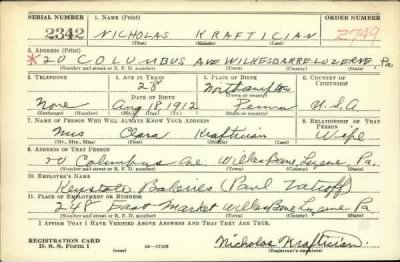 SERIAL NUMBER 1. NAME (Print) ORDER NUMBER
2342 NICHOLAS KRAFTICIAN 2749
(First) (Middle) (Last)
2. ADDRESS (Print)
*20 COLUMBUS AVE. WILKESBARRE LUZERNE Pa
(Number and street or R. F. D. number) (Town) (County) (State)
3. TELEPHONE 4. AGE IN YEARS 5. PLACE OF BIRTH 6. COUNTRY OF CITIZENSHIP
28 Northampton
DATE OF BIRTH (Town or county)
None Aug 18, 1912 Penna U.S.A
(Exchange) (Number) (Mo.) (Day) (Yr.) (State or country)
7. NAME OF PERSON WHO WILL ALWAYS KNOW YOUR ADDRESS 8. RELATIONSHIP OF THAT PERSON
Mrs Clara Kraftician Wife
(Mr., Mrs., Miss) (First) (Middle) (Last)
9. ADDRESS OF THAT PERSON
20 Columbus Ave Wilkes Barre, Luzerne Pa.
(Number and street or R. F. D. number) (Town) (County) (State)
10. EMPLOYER'S NAME
Keystone Bakeries (Paul
11. PLACE OF EMPLOYMENT OR BUSINESS
248 East Market Wilkes Barre Luzerne Pa
(Number and street or R. F. D. number) (Town) (County) (State)
I AFFIRM THAT I HAVE VERIFIED ABOVE ANSWERS AND THAT THEY ARE TRUE.
REGISTRATION CARD
D. S. S. Form 1 (over) Nicholas Kraftician.
(Registrant's signature)